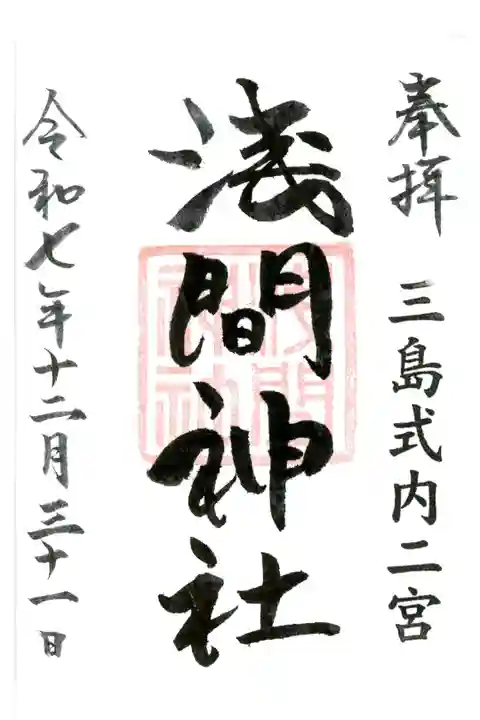 奉拝 三島式内二宮
浅間神社
浅間
神社
令和七年十二月三十一日